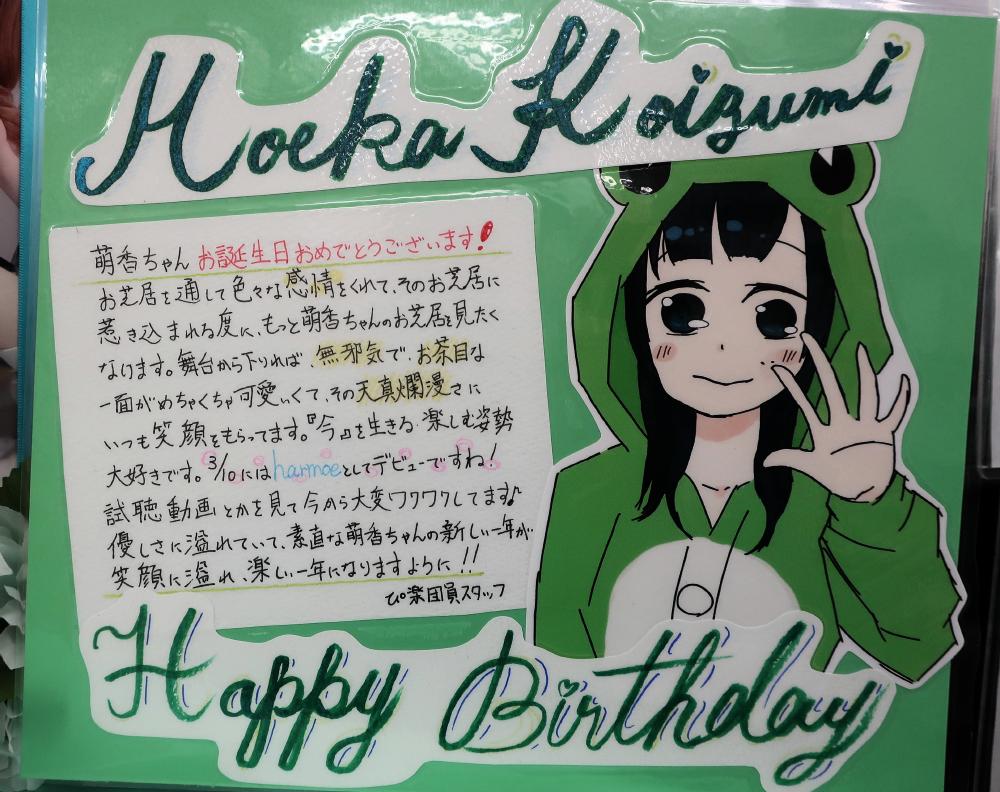 Moeka Koizumi
萌香ちゃん お誕生日おめでとうございます!
お芝居を通して色々な感情をくれて、そのお芝居に
惹き込まれる度に、もっと萌香ちゃんのお芝居を見たく
なります。舞台から下りれば、無邪気で、お茶目な
一面がめちゃくちゃ可愛いくて、その天真爛漫さに
いつも笑顔をもらってます。『今』を生きる、楽しむ姿勢
大好きです。3/10にはharmoeとしてデビューですね!
試聴動画とかを見て今から大変ワクワクしてます♪
優しさに溢れていて、素直な萌香ちゃんの新しい一年が
笑顔に溢れ、楽しい一年になりますように!!
ぴ楽団員スタッフ
Happy Birthday